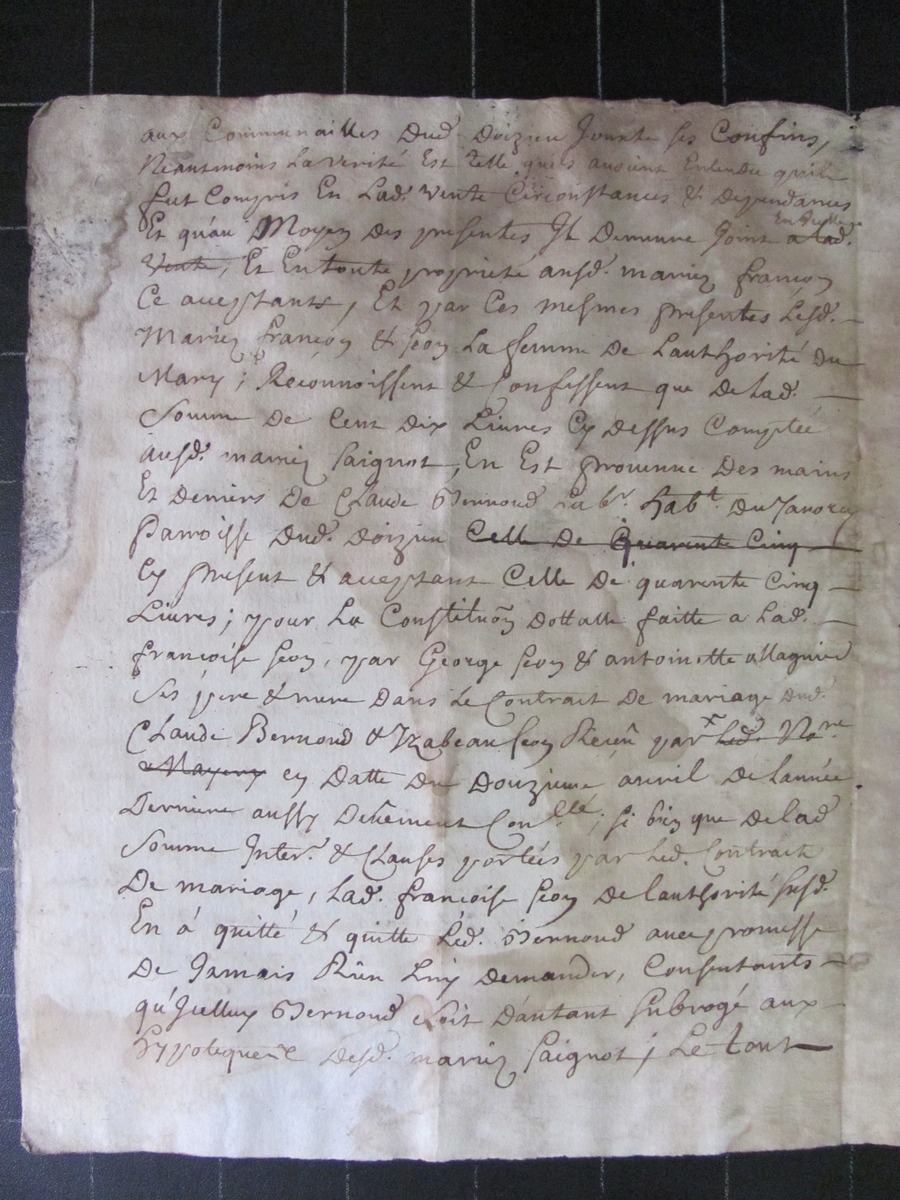 aux Communailles dud. Doizieu Jouxte ses Confins,
Neantmoins La verité Est telle quils avoient Entendu quil
fut Compris En Lad. vente Circonstances & dependances
Et qu'au Moyen des presentes Il Demeure Joint a lad.
vente, Et En toute proprieté ausd. mariez françon
Ce acceptants, Et par Ces mesmes presentes Lesd.
Mariez françon & Seon La femme De Lauthorité du
Mary; Reconnoissent & Confessent que De Lad.
Somme De Cent dix Livres Cy Dessus Comptée
ausd. mariez Paignot, En Est provenue Des mains
Et Deniers De Claude Bernoud Lab.r hab.t Du
Parroisse Dud. Doizieu Celle De Quarente Cinq
Cy present & acceptant Celle De quarente Cinq
Livres; pour La Constituõn dottalle faitte a Lad.
françoise Seon, par George Seon & antoinette Magnin
Ses pere & mere Dans Le Contrait De mariage Dud.
Claude Bernoud & Yzabeau Seon Receu par led. No.re
en Datte du Douzieme avril de Lannée
Derniere aussy Deüement Con.llé; si bien que De lad
Somme Inter.t & Clauses portées par Led. Contrait
De mariage, Lad. françoise Seon de lauthorité susd.
En á quitté & quitte Led. Bernoud avec promesse
De Jamais Rien Luy Demander, Consentants
qu'Jcelluy Bernoud soit Dautant subrogé aux
Desd. mariez Paignot; Le tout